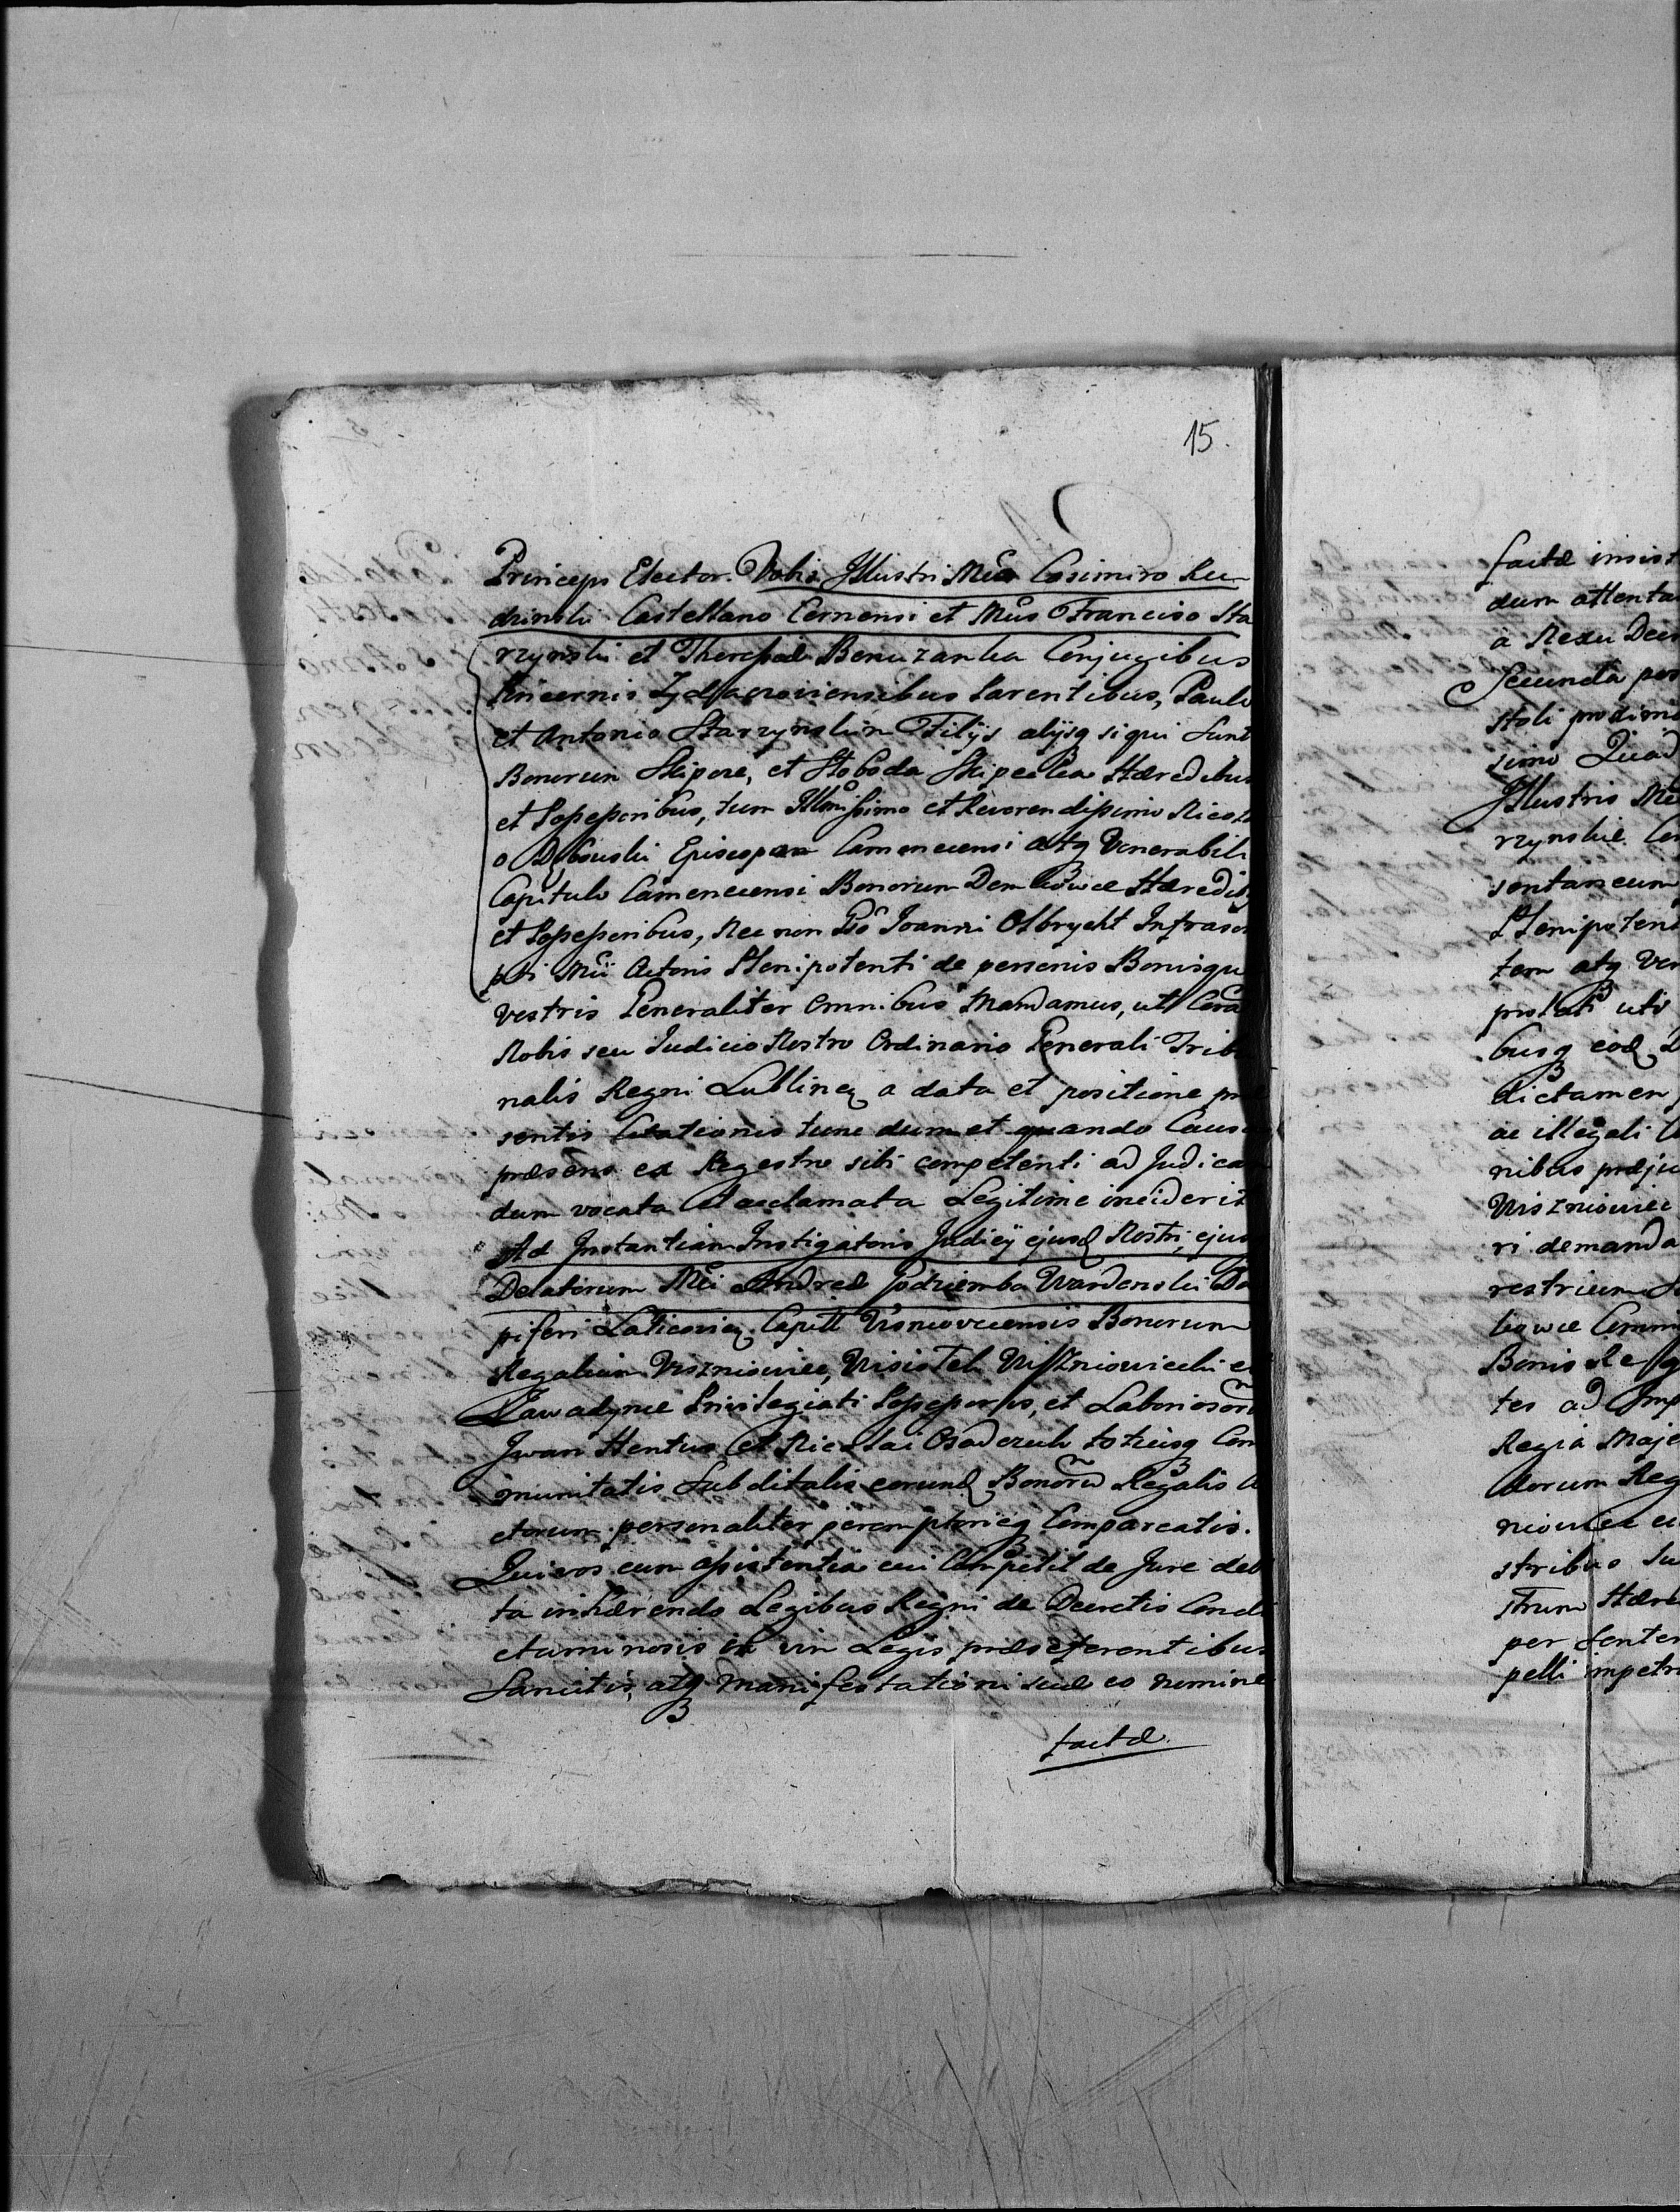 15.
Princeps Elector. Vobis Illustri Mco Casimiro Ku
drinski Castellano Cernensi et Mcis Francisco Sta
rzynski et Theressæ Benuzanka Conjugibus
Pincernis Zydaczoviensibus Parentibus, Paulo
et Antonio Starzynskim Filijs alijsq siqui Sunt
Bonorum Skipcze, et Słoboda Skipecka Hæredibus
et Possessoribus, tum Illmissimo et Reverendissimo Nicola
o Dębowski Episcopo Camenecensi atq Venerabili
Capitulo Camenecensi Bonorum Demkowce Hæredib
et Possessoribus, Nec non Gso Joanni Olbrycht Infrascr
pti Mci Actoris Plenipotenti de personis Bonisqu
vestris Generaliter Omnibus Mandamus, ut Cora
Nobis seu Judicio Nostro Ordinario Generali Tribu
nalis Regni Lublinen a data et positione præ
sentis Citationis tunc dum et quando Causa
præsens ex Regestro sibi competenti ad Judican
dum vocata et acclamata Legitime inciderit
Ad Instantiam Instigatoris Judicij ejusd Nostri, ejusq
Delatorum Mci Andreæ Podziemba Wardenski Da
piferi Laticovien Capitt Visniovecensis Bonorum
Regalium Viszniowiec, Wisiołek Wiszniowiecki et
Zawadynce Privilegiati Possessoris, et Laboriosoru
Iwan Hentus et Nicolai Osadczuk totiusq Com
munitatis Subditalis eorund Bonoru Regalis A
ctorum personaliter peremptorieq Compareatis.
Qui vos cum assistentia cui Competit de Jure deb
ta inhærendo Legibus Regni de Decretis Cond
ctaminosis in vim Legis præseferentibus
Sancitis, atq Manifestationi suæ eo nomine
factæ
factæ insist
dum attenta
a Nexu Decr
Secunda pos
stoli proximi
simo Quad
Illustris Mc
rzynskie Con
sentaneum
Plenipotent
tem atq Ven
prolati uti
busq eod D
dictamen
ac illegali
nibus præju
Wiszniowiec
ri demanda
vestrum
kowce Comm
Bonis Reg
tes ad Imp
Regia Maje
ctorum Reg
niowiec
stribus Su
strum Hære
per Senten
pelli impetr